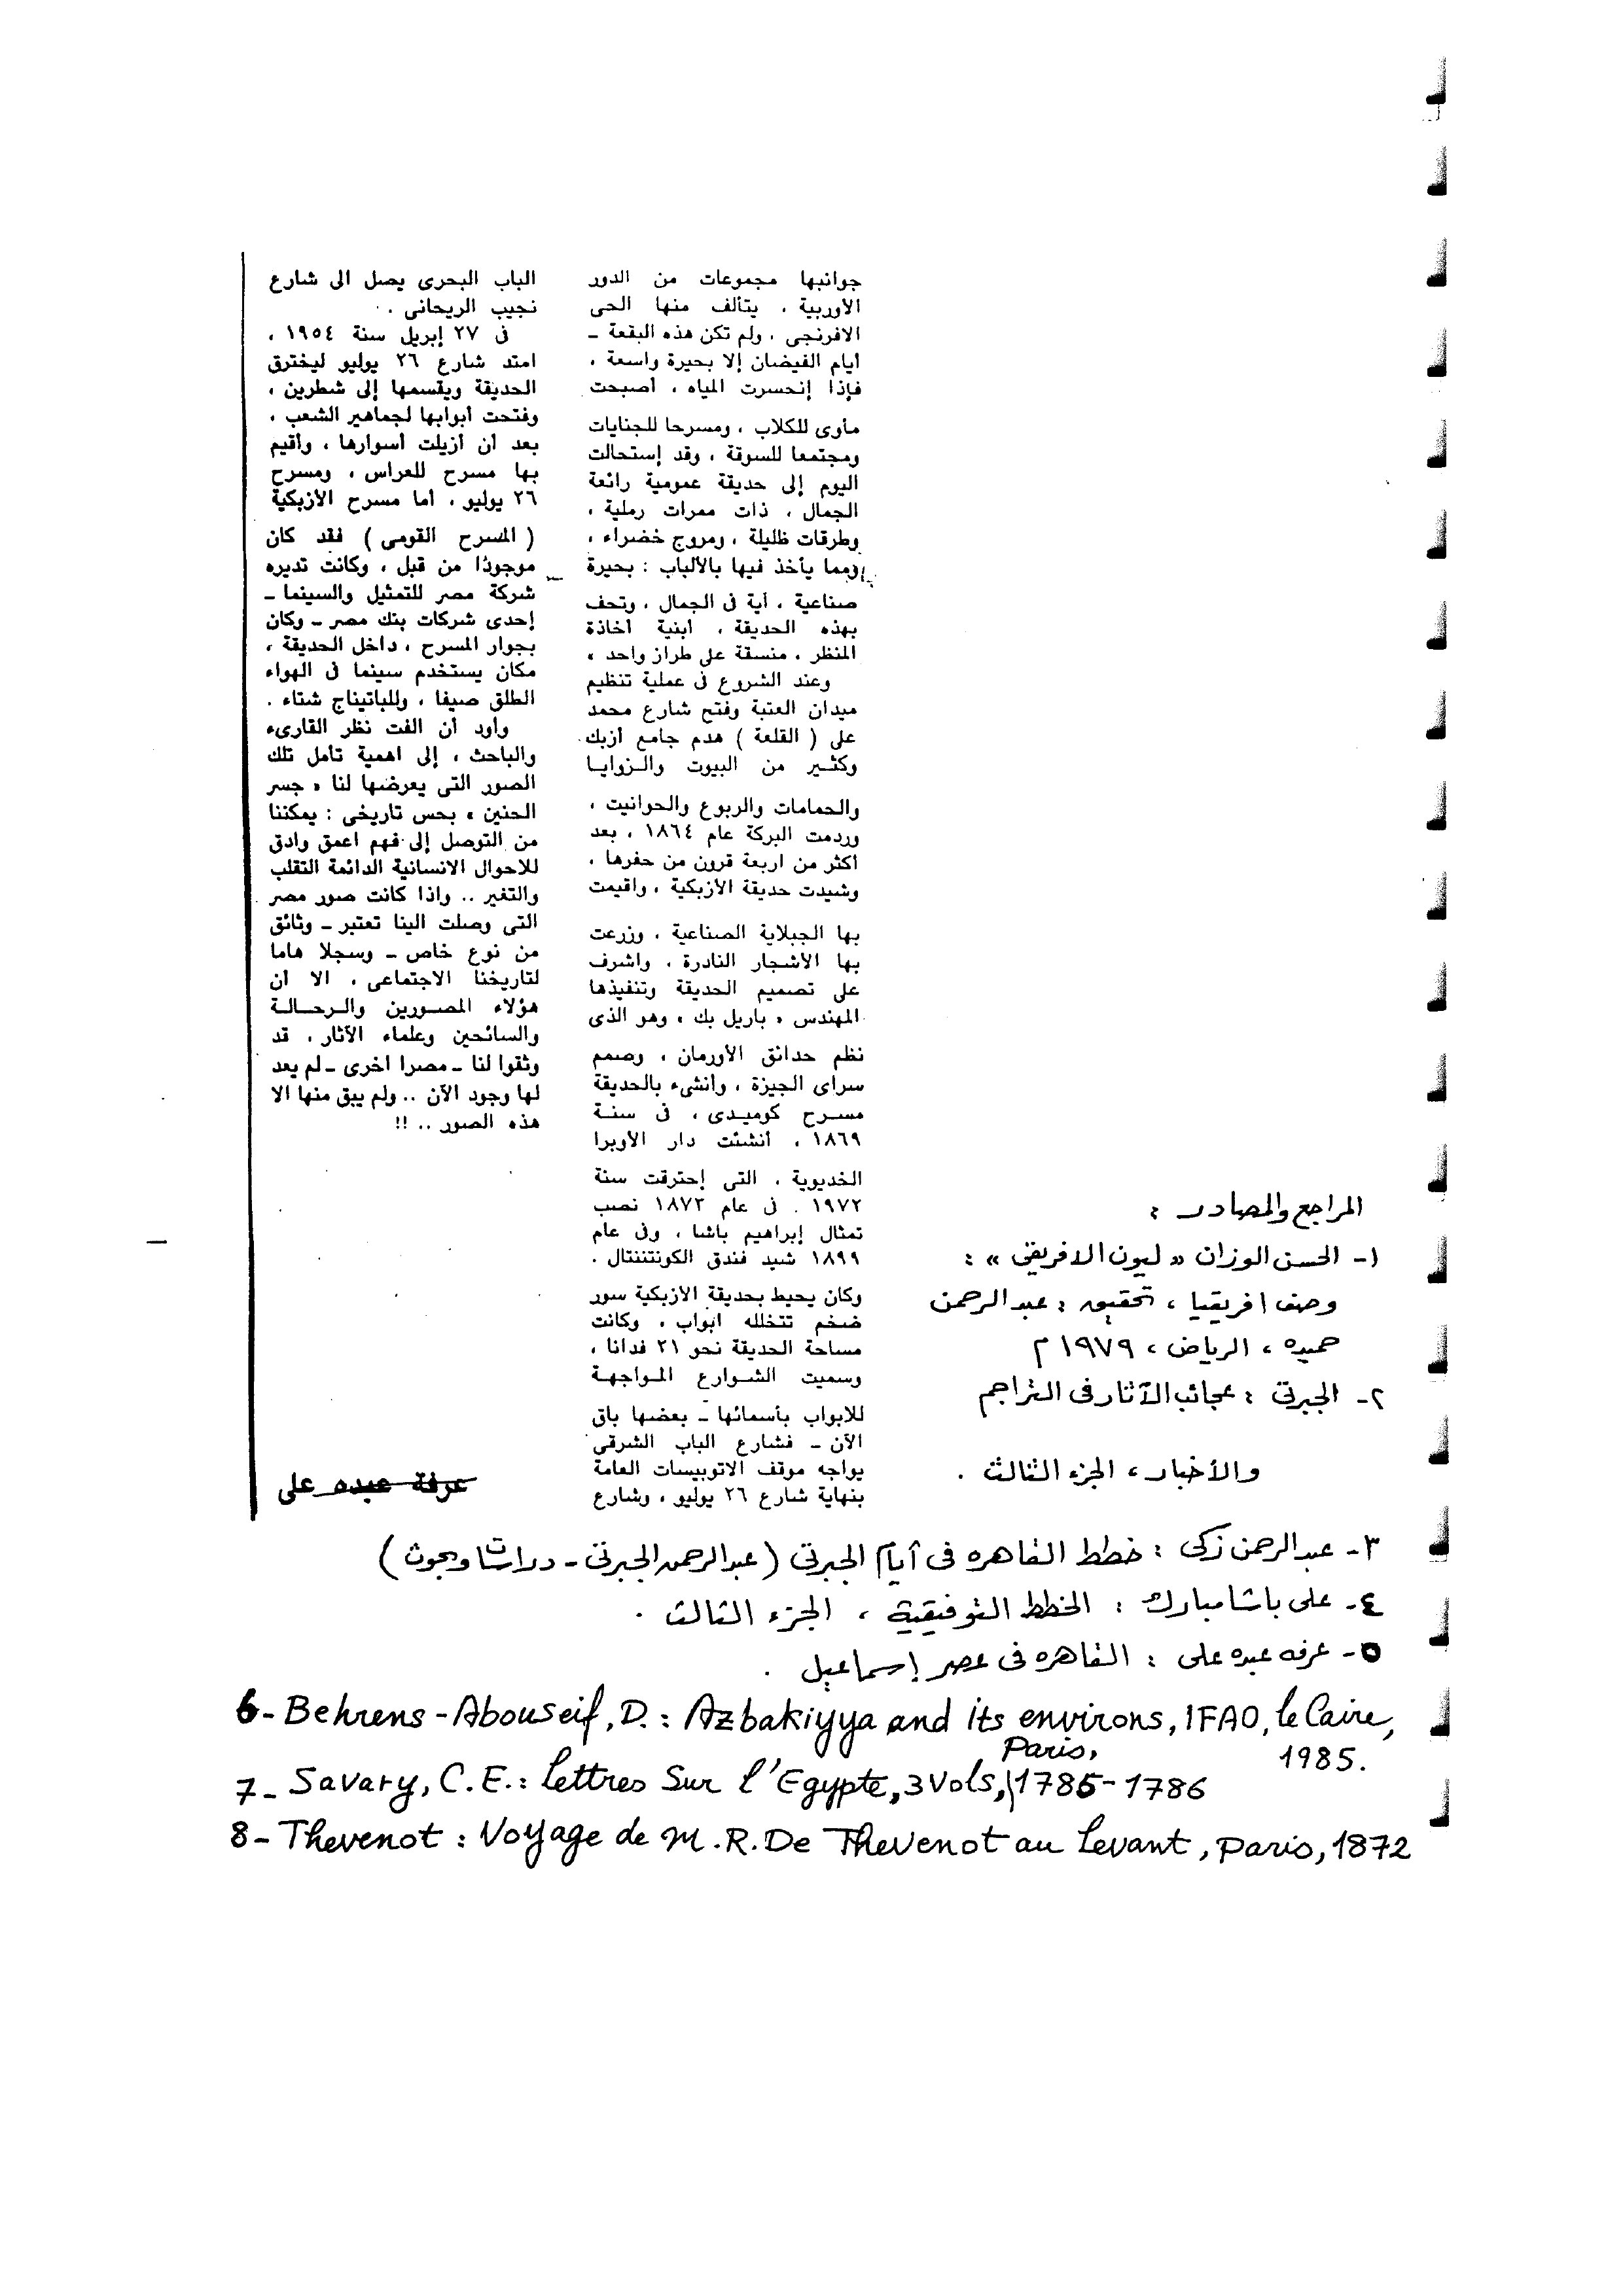 جوانبها مجموعات من الدور
الأوربية ، يتألف منها الحى
الافرنجى ، ولم تكن هذه البقعة ـ
أيام الفيضان إلا بحيرة واسعة ،
فإذا إنحسرت المياه ، أصبحت
مأوى للكلاب ، ومسرحا للجنايات
ومجتمعا للسوقة ، وقد إستحالت
اليوم إلى حديقة عمومية رائعة
الجمال ، ذات ممرات رملية ،
وطرقات ظليلة ، ومروج خضراء ،
ومما يأخذ فيها بالألباب : بحيرة
صناعية ، أية فى الجمال ، وتحف
بهذه الحديقة ، أبنية أخاذة
المنظر ، منسقة على طراز واحد »
وعند الشروع فى عملية تنظيم
ميدان العتبة وفتح شارع محمد
على ( القلعة ) هدم جامع أزبك
وكثير من البيوت والزوايا
والحمامات والربوع والحوانيت ،
وردمت البركة عام ١٨٦٤ ، بعد
أكثر من اربعة قرون من حفرها ،
وشيدت حديقة الأزبكية ، واقيمت
بها الجبلاية الصناعية ، وزرعت
بها الأشجار النادرة ، واشرف
على تصميم الحديقة وتنفيذها
المهندس « باريل بك » وهو الذى
نظم حدائق الأورمان ، وصمم
سراى الجيزة ، وأنشىء بالحديقة
مسرح كوميدى ، فى سنة
١٨٦٩ ، أنشئت دار الأوبرا
الخديوية ، التى إحترقت سنة
١٩٧٢ . فى عام ١٨٧٣ نصب
تمثال إبراهيم باشا ، وفى عام
١٨٩٩ شيد فندق الكونتننتال .
وكان يحيط بحديقة الازبكية سور
ضخم تتخلله ابواب ، وكانت
مساحة الحديقة نحو ٢١ فدانا ،
وسميت الشوارع المواجهة
للابواب بأسمائها ـ بعضها باق
الآن ـ فشارع الباب الشرقى
يواجه موقف الاتوبيسات العامة
بنهاية شارع ٢٦ يوليو ، وشارع
الباب البحرى يصل الى شارع
نجيب الريحانى .
فى ٢٧ إبريل سنة ١٩٥٤ ،
امتد شارع ٢٦ يوليو ليخترق
الحديقة ويقسمها إلى شطرين ،
وفتحت أبوابها لجماهير الشعب ،
بعد أن أزيلت أسوارها ، وأقيم
بها مسرح للعراس ، ومسرح
٢٦ يوليو ، أما مسرح الأزبكية
( المسرح القومى ) فقد كان
موجودًا من قبل ، وكانت تديره
شركة مصر للتمثيل والسينما ـ
إحدى شركات بنك مصر ـ وكان
بجوار المسرح ، داخل الحديقة ،
مكان يستخدم سينما فى الهواء
الطلق صيفا ، وللباتيناج شتاء .
وأود أن الفت نظر القارىء
والباحث ، إلى اهمية تأمل تلك
الصور التى يعرضها لنا « جسر
الحنين » بحس تاريخى : يمكننا
من التوصل إلى فهم اعمق وادق
للاحوال الانسانية الدائمة التقلب
والتغير .. واذا كانت صور مصر
التى وصلت الينا تعتبر ـ وثائق
من نوع خاص ـ وسجلا هاما
لتاريخنا الاجتماعى ، الا أن
هؤلاء المصورين والرحالة
والسائحين وعلماء الآثار ، قد
وثقوا لنا ـ مصرا اخرى ـ لم يعد
لها وجود الآن .. ولم يبق منها الا
هذه الصور .. !!
عرفة عبده على
المراجع والمصادر :
١- الحسن الوزان « ليون الافريقى » :
وصف افريقيا ، تحقيق : عبد الرحمن
حميده ، الرياض ، ١٩٧٩ م
٢- الجبرتى : عجائب الآثار فى التراجم
والأخبار ، الجزء الثالث .
٣- عبد الرحمن زكى : خطط القاهره فى أيام الجبرتى ( عبد الرحمن الجبرتى - دراسات وبحوث )
٤- على باشا مبارك : الخطط التوفيقية ، الجزء الثالث .
٥- عرفه عبده على : القاهره فى عصر إسماعيل .
6- Behrens-Abouseif, D.: Azbakiyya and its environs, IFAO, le Caire,
1985.
7- Savary, C.E.: Lettres Sur l'Egypte, 3 Vols, Paris, 1785-1786
8- Thevenot : Voyage de M.R. De Thevenot au Levant, Paris, 1872